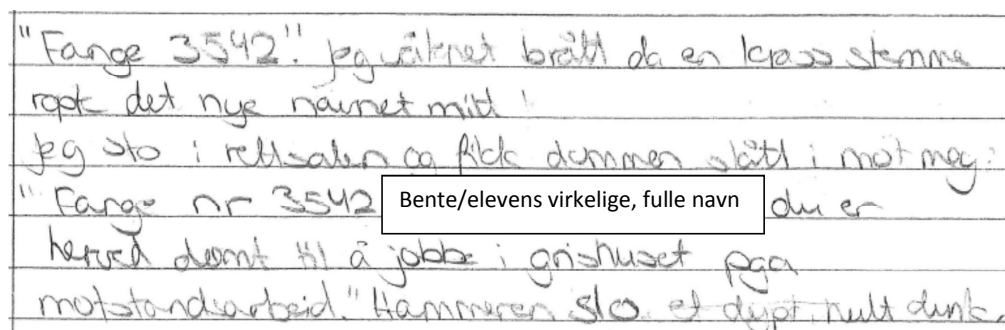 "Fange 3542". Jeg våknet brått da en krass stemme
ropte det nye navnet mitt!
Jeg sto i rettsalen og fikk dommen slått i mot meg:
"Fange nr 3542 Bente/elevens virkelige, fulle navn du er
herved dømt til å jobbe i grishuset pga
motstandsarbeid." Hammeren slo et dypt, hult dunk